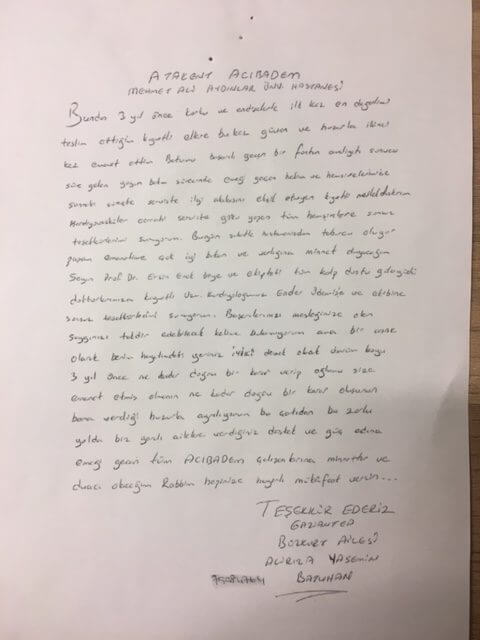 ATAKENT ACIBADEM
MEHMET ALİ AYDINLAR ÜNV. HASTANESİ
Bundan 3 yıl önce korku ve endişelerle ilk kez en değerlimi
teslim ettiğim kıymetli ellere bu kez güven ve huzurla ikinci
kez emanet ettim Batumu başarılı geçen bir fontan ameliyatı sonucu
süre gelen yoğun bakım sürecinde emeği geçen hekim ve hemşirelerimize
sonraki süreçte serviste ilgi alakasını eksik etmeyen kıymetli
Kardiyovasküler cerrahi serviste görev yapan tüm hemşirelere sonsuz
teşekkürlerimi sunuyorum. Bugün sıhhatle hastanenizden taburcu oluyor
emanetime çok iyi bakan ve varlığına minnet duyacağım
Sayın Prof. Dr. Ersin Erek beye ve ekipteki tüm kalp dostu
doktorlarımıza kıymetli Uzm. Kardiyoloğumuz Ender Ödemiş'e ve ekibine
sonsuz teşekkürlerimi sunuyorum. Başarılarınızı mesleğinize olan
saygınızı takdir edebilecek kelime bulamıyorum ama bir anne
olarak benim hayatımdaki yeriniz
3 yıl önce ne kadar doğru bir karar verip oğlumu size
emanet etmiş olmanın ne kadar doğru bir karar oluşunun
bana verdiği huzurla ayrılıyorum bu çatıdan bu zorlu
yolda biz yaralı ailelere verdiğiniz destek ve güç adına
emeği geçen tüm ACIBADEM çalışanlarına minnettar ve
duacı olacağım Rabbim hepinize hayırlı mükâfaat versin...
TEŞEKKÜR EDERİZ
GAZİANTEP
BOZKURT AİLESİ
ALİRIZA YASEMİN
BATUHAN